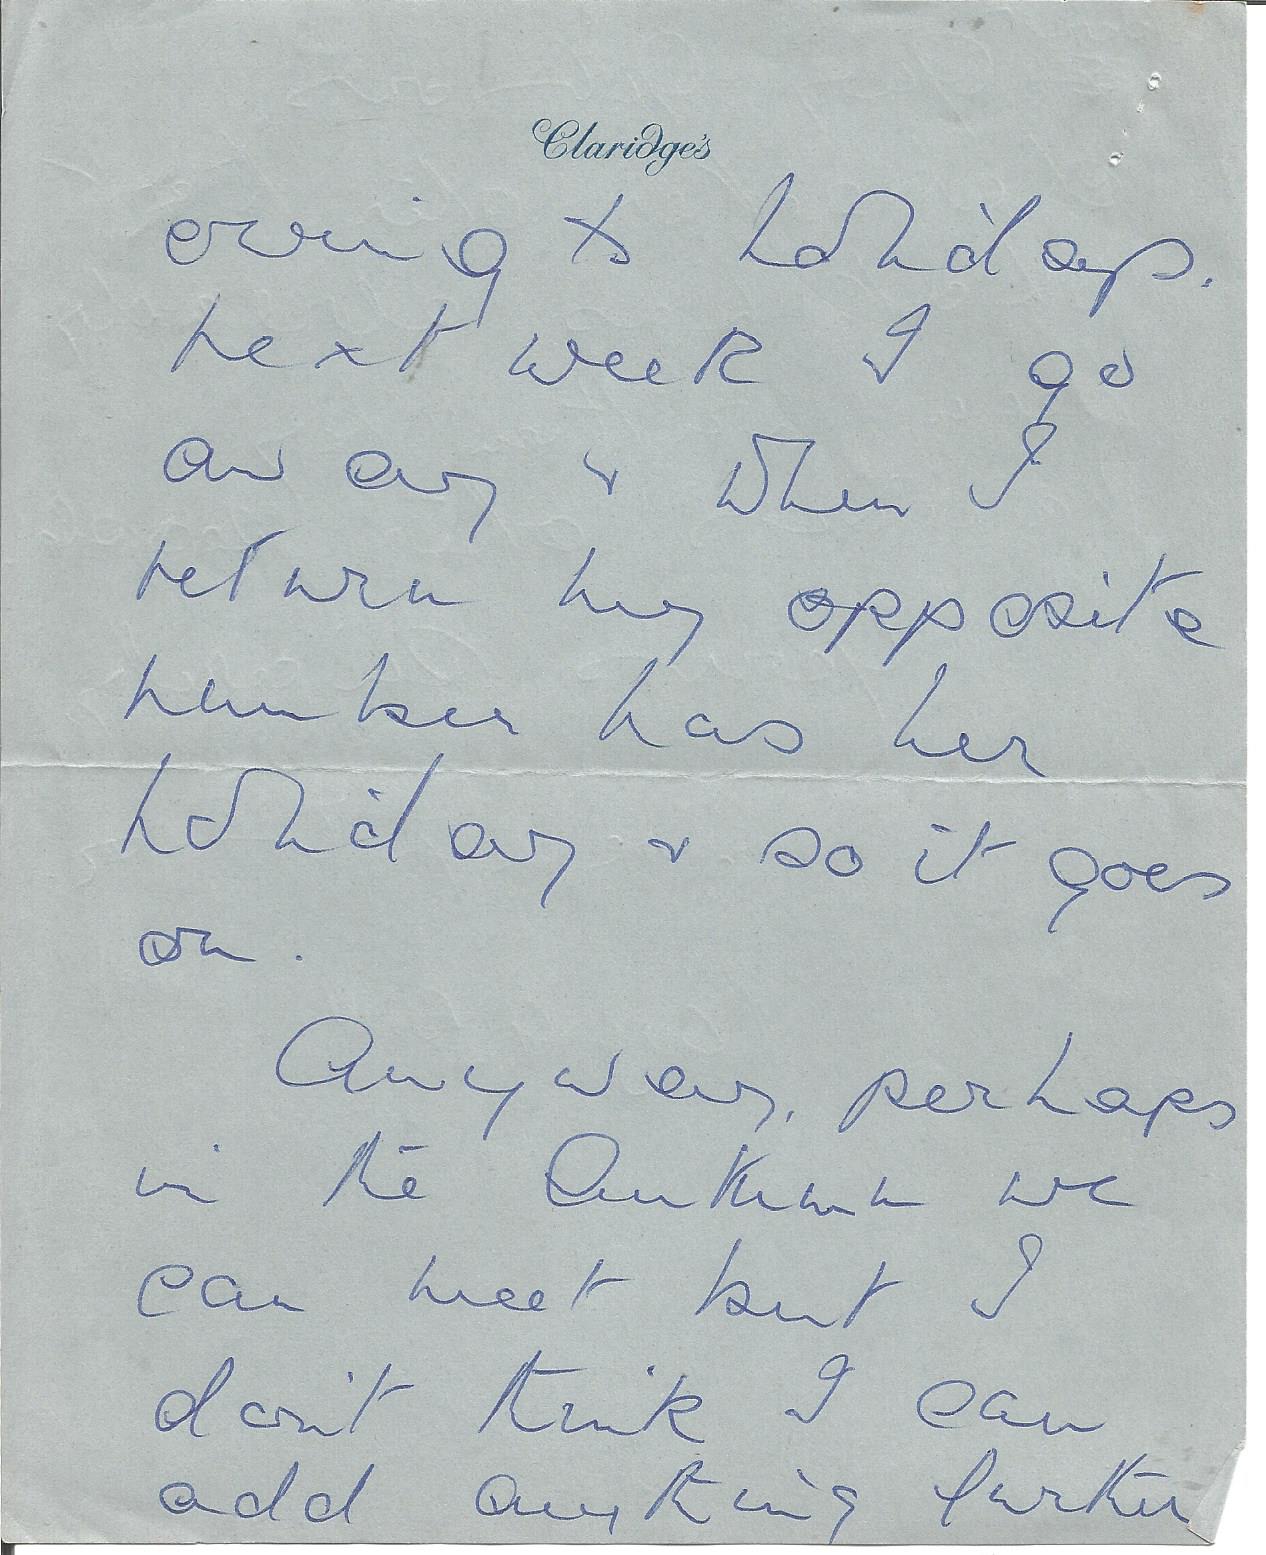 Claridge's
owing to holidays.
Next week I go
away & when I
return my opposite
number has her
holiday & so it goes
on.
Anyway, perhaps
in the Autumn we
can meet but I
don't think I can
add anything further